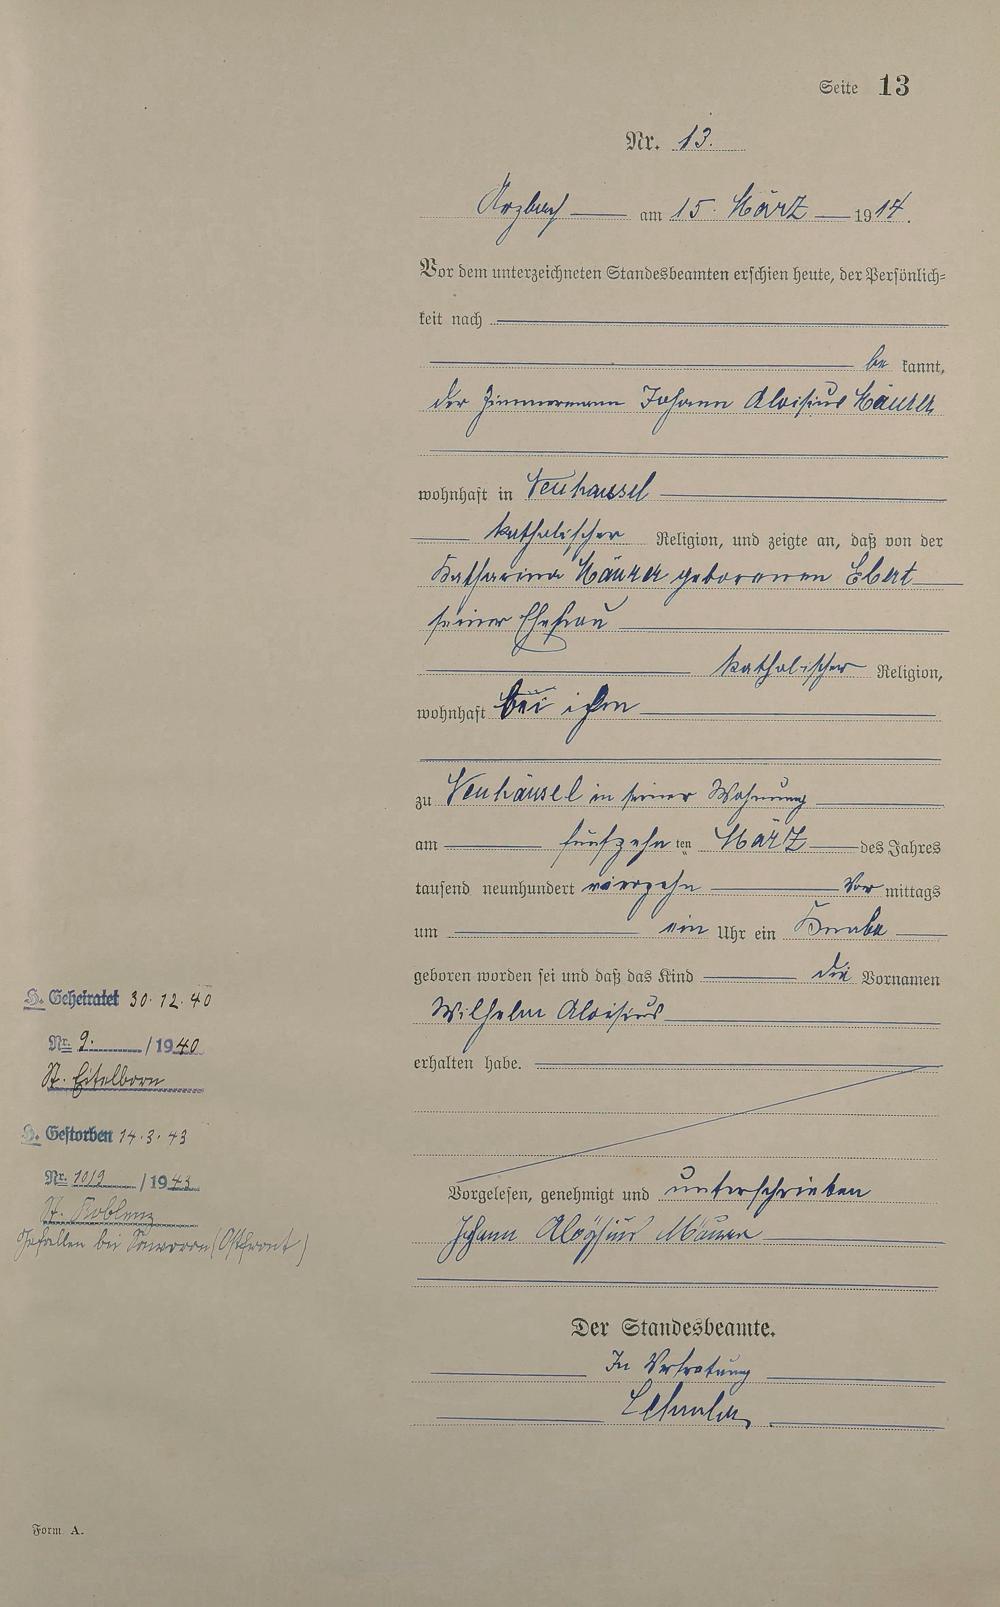 Seite 13
Nr. 13.
Arzbach am 15. März 1914.
Vor dem unterzeichneten Standesbeamten erschien heute, der Persönlich=
keit nach
be kannt,
der Zimmermann Johann Aloisius Mäurer
wohnhaft in Neuhäusel
katholischer Religion, und zeigte an, daß von der
Katharina Mäurer geborenen Ebert
seiner Ehefrau
katholischer Religion,
wohnhaft bei ihm
zu Neuhäusel in seiner Wohnung
am fünfzehnten März des Jahres
tausend neunhundert vierzehn Vor mittags
um ein Uhr ein Knabe
geboren worden sei und daß das Kind die Vornamen
Wilhelm Aloisius
erhalten habe.
Vorgelesen, genehmigt und unterschrieben
Johann Aloÿsius Mäurer
Der Standesbeamte.
In Vertretung
H. Geheiratet 30.12.40
Nr. 9. /1940
St. Eitelborn
H. Gestorben 14.3.43
Nr. 1019 /1943
St. Koblenz
Gefallen bei (Ostfront)
Form A.